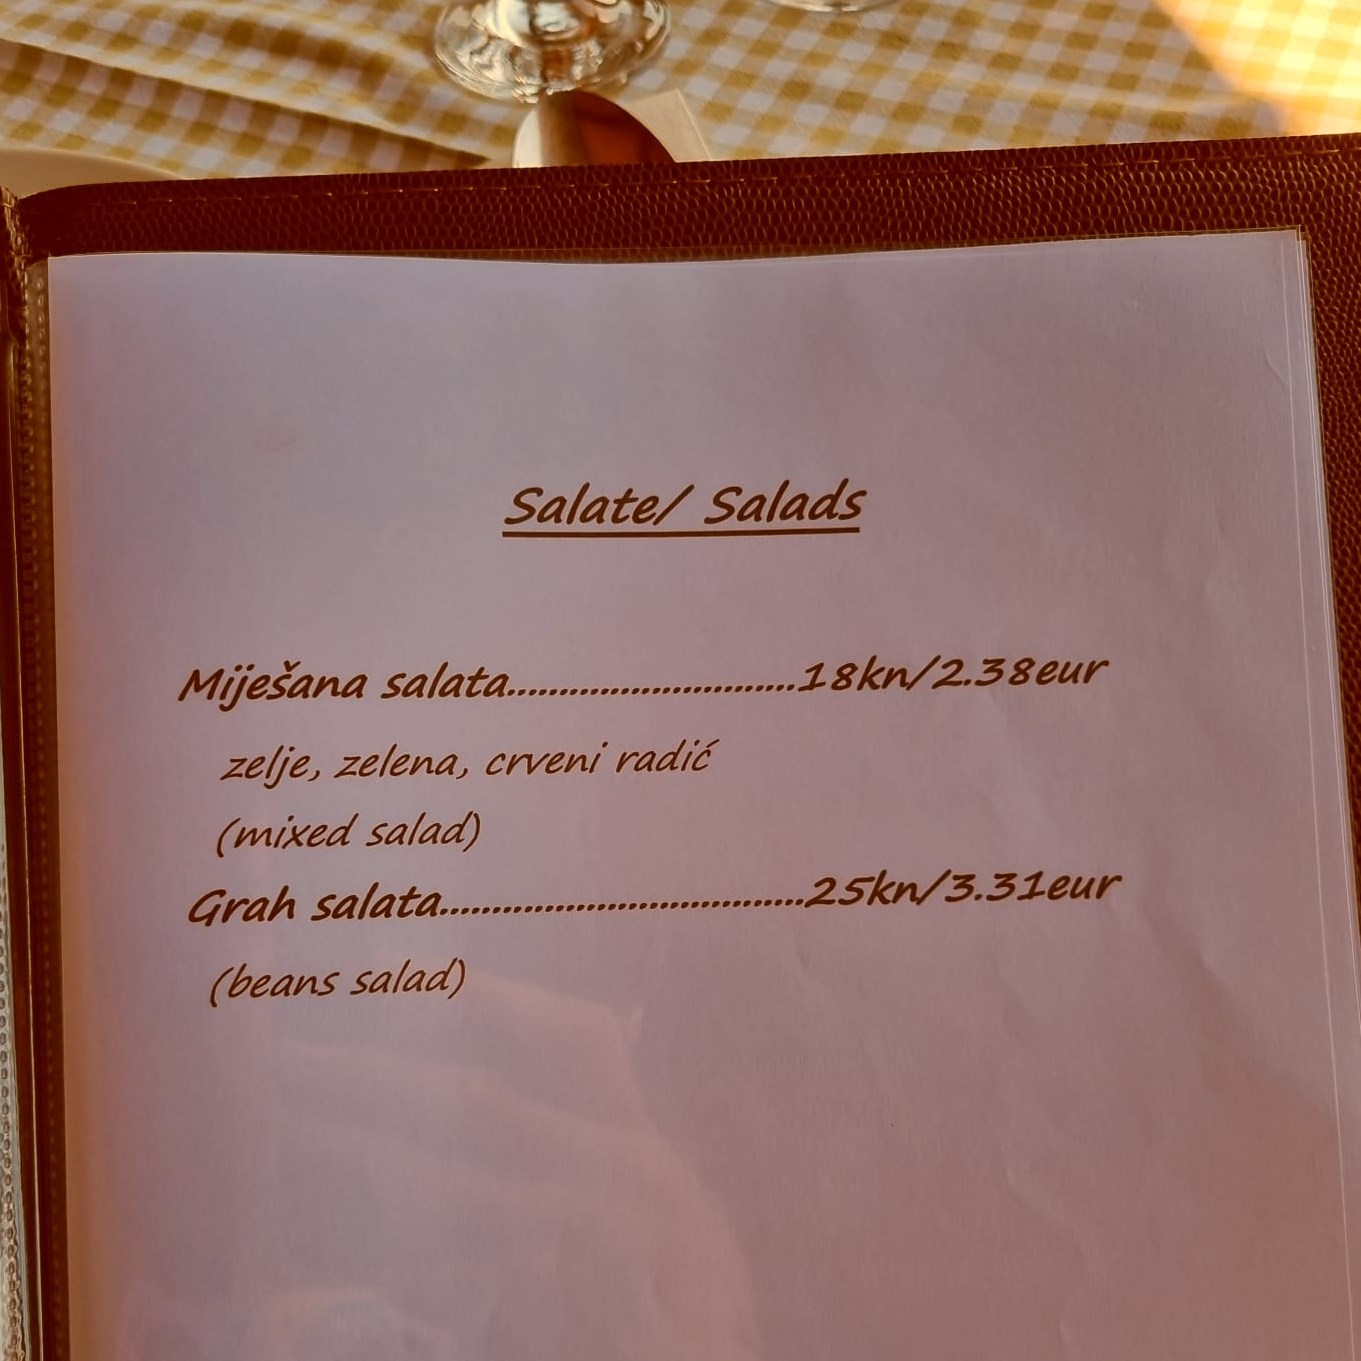 Salate/ Salads
Miješana salata............................18kn/2.38eur
zelje, zelena, crveni radić
(mixed salad)
Grah salata...................................25kn/3.31eur
(beans salad)